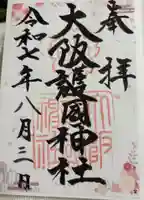 奉拝
大阪護國神社
令和七年八月三日